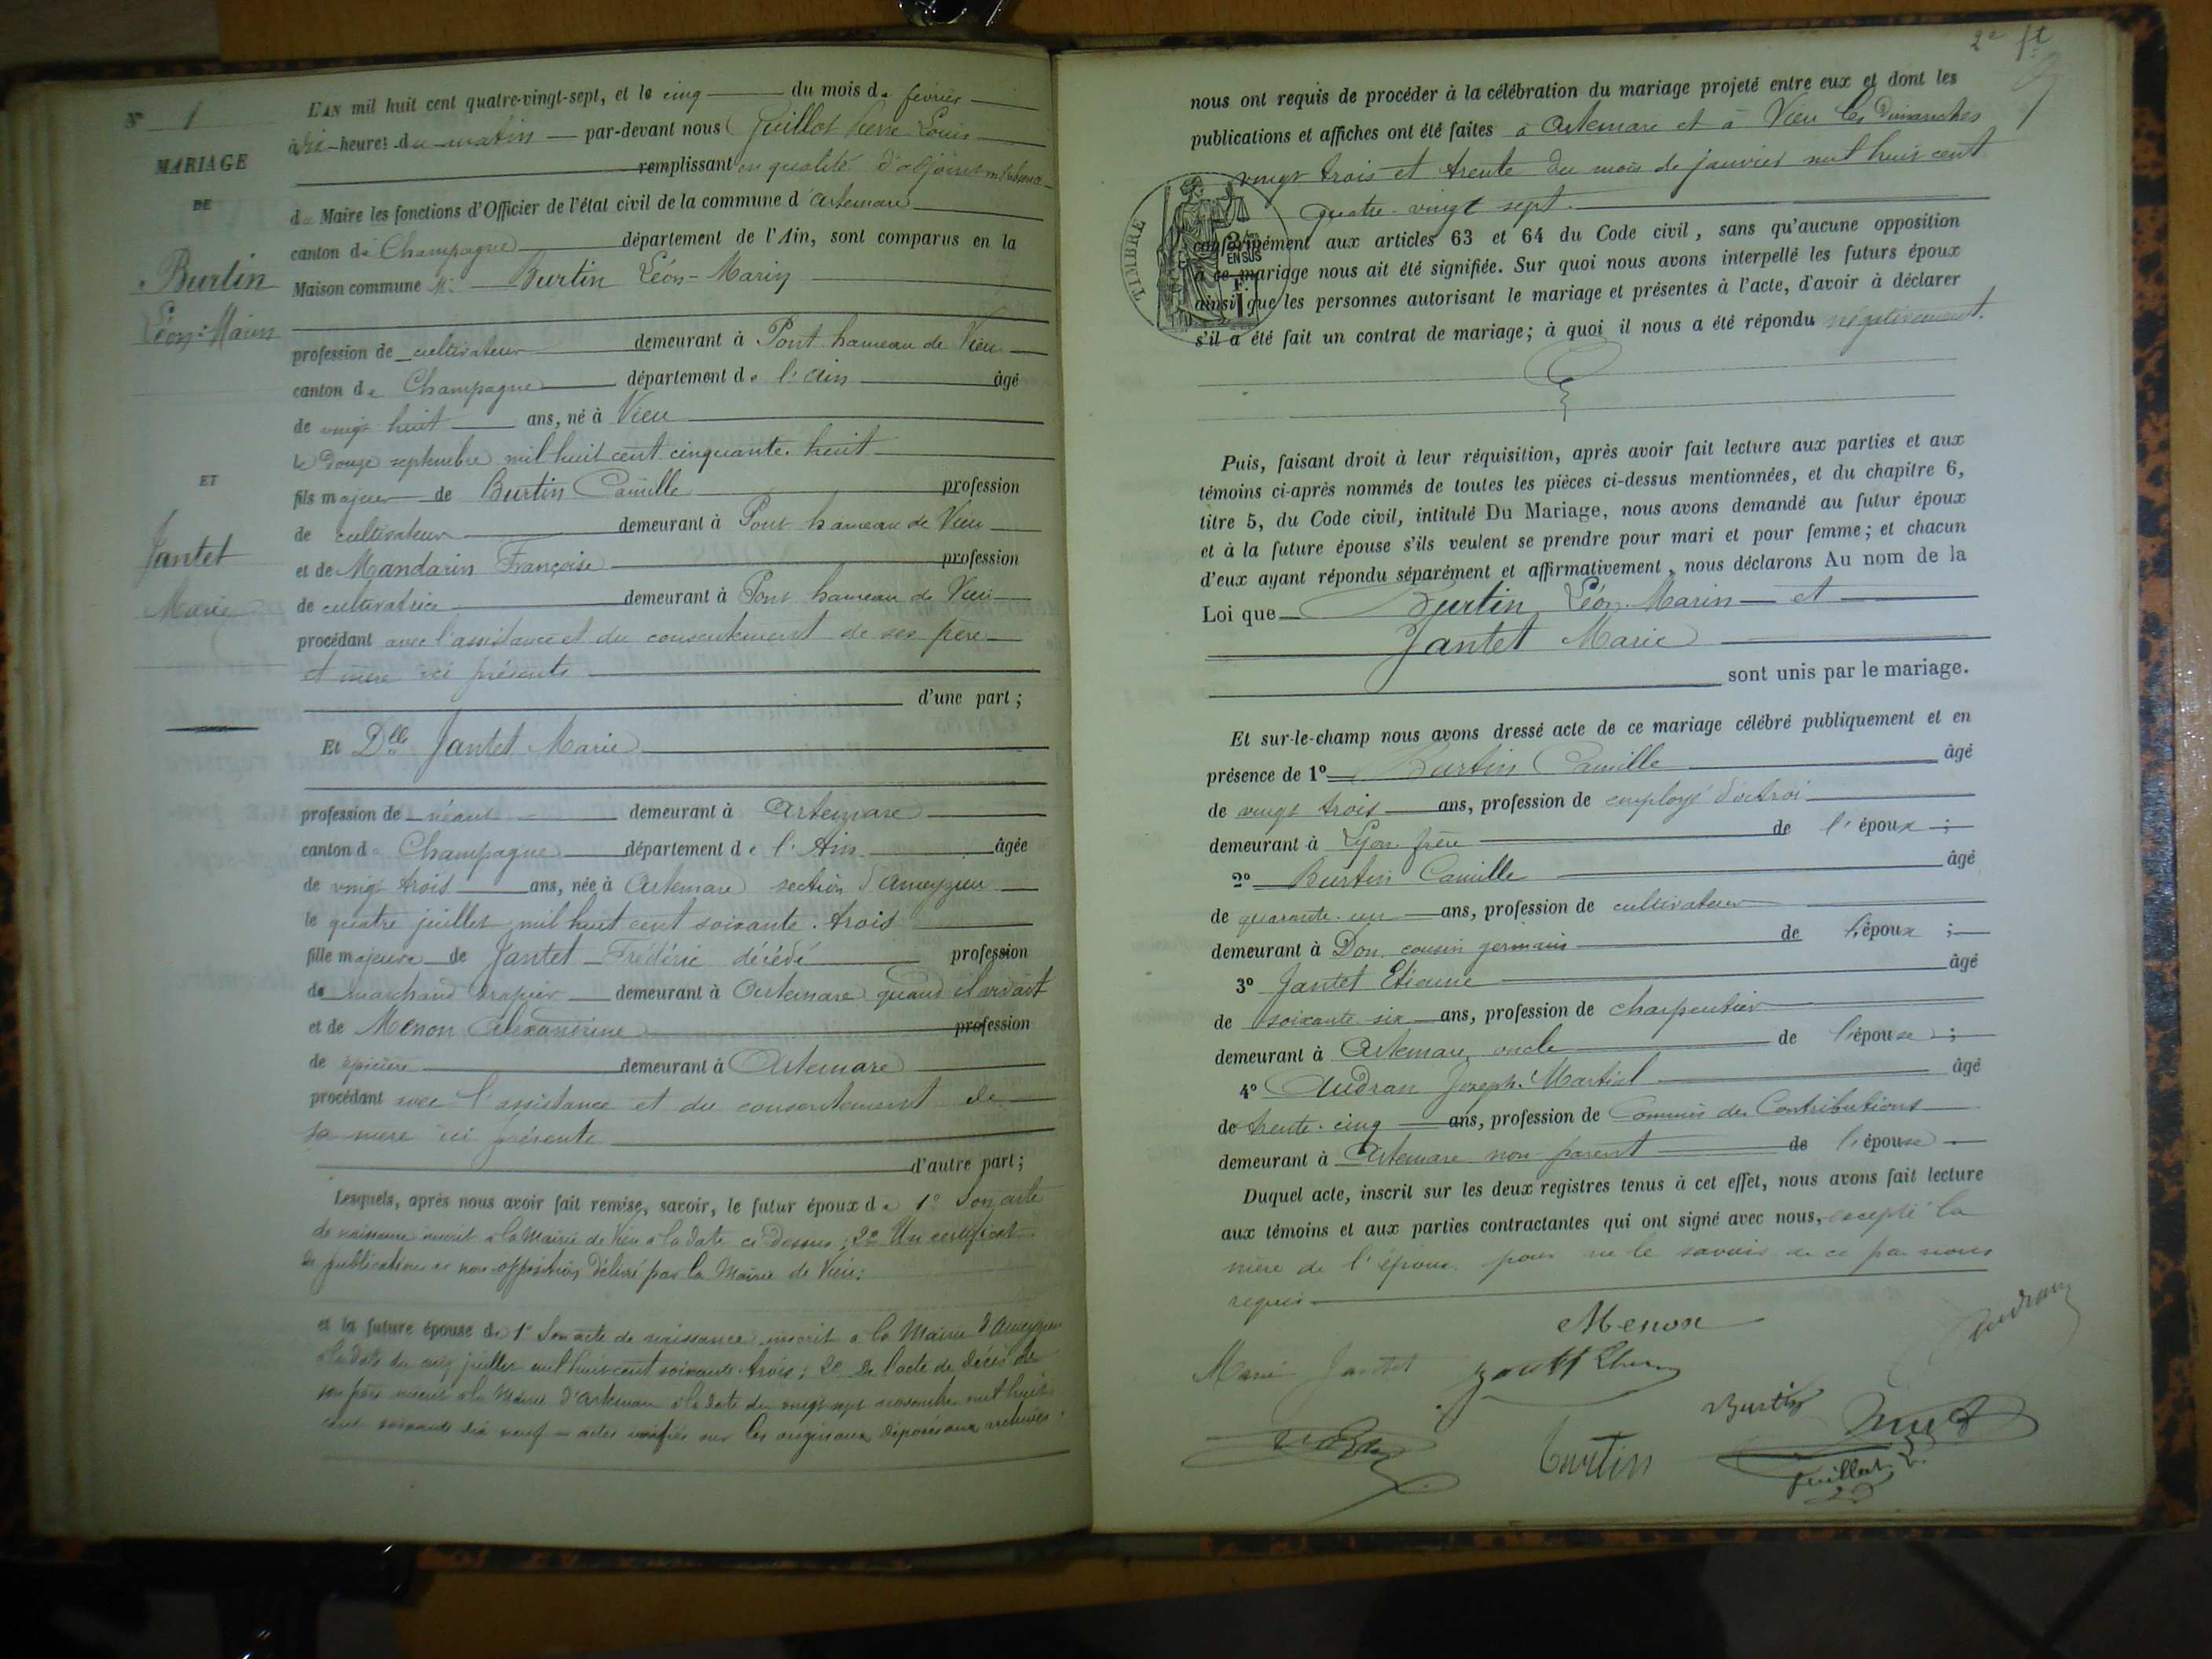 N° 1
MARIAGE
DE
Burtin
Léon-Marin
ET
Jantet
Marie
L'AN mil huit cent quatre-vingt-sept, et le cinq du mois de février
à dix heures du matin par-devant nous Guillot Pierre Louis
remplissant en qualité d'adjoint en l'absence
de Maire les fonctions d'Officier de l'état civil de la commune d'Artemare
canton de Champagne département de l'Ain, sont comparus en la
Maison commune Mr Burtin Léon-Marin
profession de cultivateur demeurant à Pont hameau de Vieu
canton de Champagne département de l'Ain âgé
de vingt huit ans, né à Vieu
le douze septembre mil huit cent cinquante-huit
fils majeur de Burtin Camille profession
de cultivateur demeurant à Pont hameau de Vieu
et de Mandarin Françoise profession
de cultivatrice demeurant à Pont hameau de Vieu
procédant avec l'assistance et du consentement de ses père
et mère ici présents
d'une part;
Et Dlle Jantet Marie
profession de néant demeurant à Artemare
canton de Champagne département de l'Ain âgée
de vingt trois ans, née à Artemare section d'Ameyzieu
le quatre juillet mil huit cent soixante-trois
fille majeure de Jantet Frédéric décédé profession
de marchand drapier demeurant à Artemare quand il vivait
et de Menon Alexandrine profession
de épicière demeurant à Artemare
procédant avec l'assistance et du consentement de
sa mère ici présente
d'autre part;
Lesquels, après nous avoir fait remise, savoir, le futur époux de 1° Son acte
de naissance inscrit à la Mairie de Vieu à la date ci-dessus; 2° Un certificat
de publications et non-opposition délivré par la Mairie de Vieu;
et la future épouse de 1° Son acte de naissance inscrit à la Mairie d'Ameyzieu
à la date du cinq juillet mil huit cent soixante-trois; 2° De l'acte de décès de
son père inscrit à la Mairie d'Artemare à la date du vingt sept novembre mil huit
cent soixante dix neuf - actes vérifiés sur les originaux déposés aux archives.
2e ft
nous ont requis de procéder à la célébration du mariage projeté entre eux et dont les
publications et affiches ont été faites à Artemare et à Vieu les Dimanches
vingt trois et trente du mois de janvier mil huit cent
quatre-vingt sept.
conformément aux articles 63 et 64 du Code civil, sans qu'aucune opposition
à ce mariage nous ait été signifiée. Sur quoi nous avons interpellé les futurs époux
ainsi que les personnes autorisant le mariage et présentes à l'acte, d'avoir à déclarer
s'il a été fait un contrat de mariage; à quoi il nous a été répondu négativement.
TIMBRE
EN SUS
Puis, faisant droit à leur réquisition, après avoir fait lecture aux parties et aux
témoins ci-après nommés de toutes les pièces ci-dessus mentionnées, et du chapitre 6,
titre 5, du Code civil, intitulé Du Mariage, nous avons demandé au futur époux
et à la future épouse s'ils veulent se prendre pour mari et pour femme; et chacun
d'eux ayant répondu séparément et affirmativement, nous déclarons Au nom de la
Loi que Burtin Léon-Marin et
Jantet Marie
sont unis par le mariage.
Et sur-le-champ nous avons dressé acte de ce mariage célébré publiquement et en
présence de 1° Burtin Camille âgé
de vingt trois ans, profession de employé d'octroi
demeurant à Lyon frère de l'époux;
2° Burtin Camille âgé
de quarante-un ans, profession de cultivateur
demeurant à Don cousin germain de l'époux;
3° Jantet Etienne âgé
de soixante six ans, profession de charpentier
demeurant à Artemare, oncle de l'épouse;
4° Audran Joseph-Martial âgé
de trente-cinq ans, profession de Commis des Contributions
demeurant à Artemare non-parent de l'épouse
Duquel acte, inscrit sur les deux registres tenus à cet effet, nous avons fait lecture
aux témoins et aux parties contractantes qui ont signé avec nous, excepté la
mère de l'époux pour ne le savoir de ce par nous
requis
Menon
Audran
Marie Jantet
Burtin
Burtin
Guillot